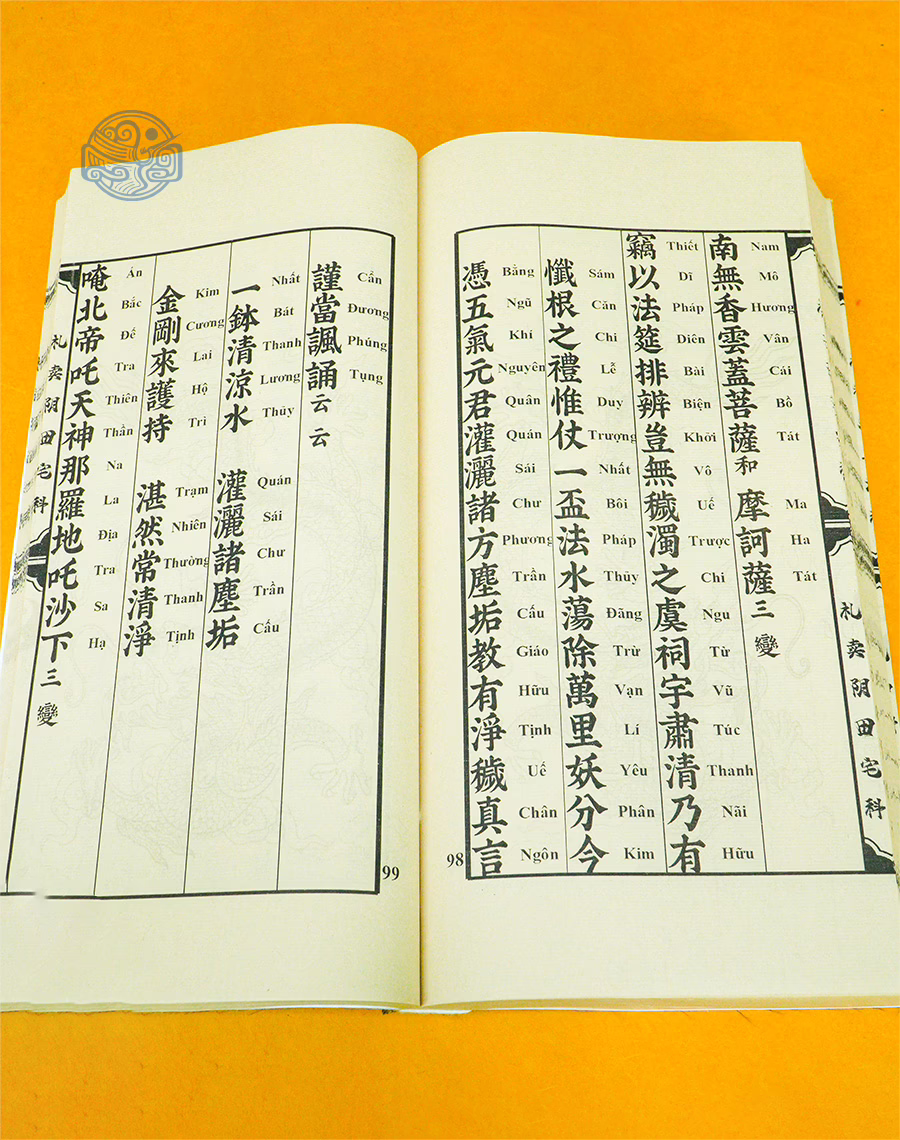 礼卖阴田宅科
Nam Mô Hương Vân Cái Bồ Tát Ma Ha Tát
南無香雲蓋菩薩和 摩訶薩三變
Thiết Dĩ Pháp Diên Bài Biện Khởi Vô Uế Trược Chi Ngu Từ Vũ Túc Thanh Nãi Hữu
竊以法筵排辨豈無穢濁之虞祠宇肅清乃有
Sám Căn Chi Lễ Duy Trượng Nhất Bôi Pháp Thủy Đãng Trừ Vạn Lí Yêu Phân Kim
懺根之禮惟仗一盃法水蕩除萬里妖分今
Bằng Ngũ Khí Nguyên Quân Quán Sái Chư Phương Trần Cấu Giáo Hữu Tịnh Uế Chân Ngôn
憑五氣元君灌灑諸方塵垢教有淨穢真言
98
Cẩn Đương Phúng Tụng
謹當諷誦云云
Nhất Bát Thanh Lương Thủy Quán Sái Chư Trần Cấu
一鉢清涼水 灌灑諸塵垢
Kim Cương Lai Hộ Trì Trạm Nhiên Thường Thanh Tịnh
金剛來護持 湛然常清淨
Án Bắc Đế Tra Thiên Thần Na La Địa Tra Sa Hạ
唵北帝吒天神那羅地吒沙下三變
礼卖阴田宅科
99